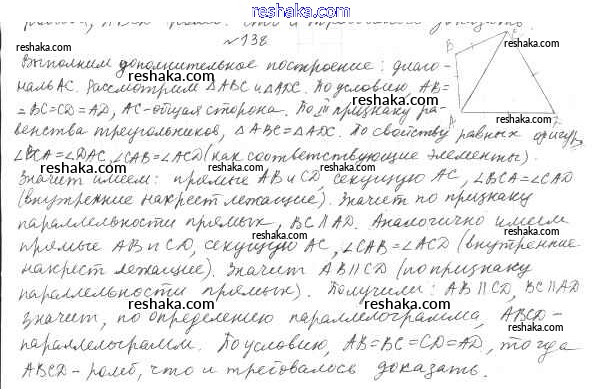 www.reshaka.com
№138
Выполним дополнительное построение: диаго-
наль AC. Рассмотрим △ABC и △ADC. По условию, AB=
=BC=CD=AD, AC-общая сторона. По III признаку ра-
венства треугольников, △ABC=△ADC. По свойству равных фигур,
∠BCA=∠DAC, ∠CAB=∠ACD (как соответствующие элементы).
Значит имеем: прямые AB и CD, секущую AC, ∠BCA=∠CAD
(внутренние накрест лежащие). Значит по признаку
параллельности прямых, BC∥AD. Аналогично имеем
прямые AB и CD, секущую AC, ∠CAB=∠ACD (внутренние
накрест лежащие). Значит AB∥CD (по признаку
параллельности прямых). Получили: AB∥CD, BC∥AD
значит, по определению параллелограмма, ABCD-
параллелограмм. По условию, AB=BC=CD=AD, тогда
ABCD-ромб, что и требовалось доказать.
reshaka.com